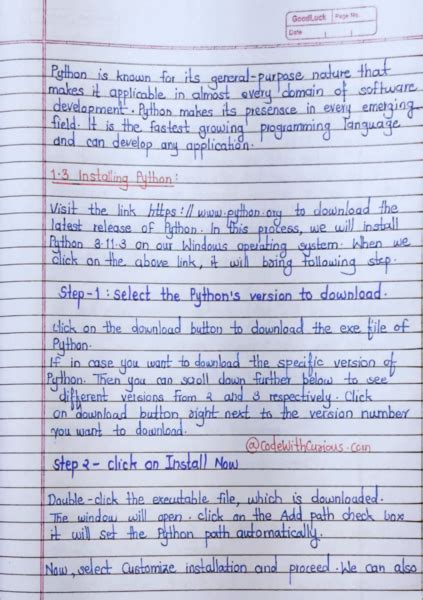 GoodLuck Page No.
Date
Python is known for its general-purpose nature that
makes it applicable in almost every domain of software
development. Python makes its presensce in every emerging
field. It is the fastest growing programming language
and can develop any application.
1.3 Installing Python:
Visit the link https://www.python.org to download the
latest release of Python. In this process, we will install
Python 3.11.3 on our Windows operating system. When we
click on the above link, it will bring following step.
Step-1: Select the Python's version to download.
Click on the download button to download the exe file of
Python.
If in case you want to download the specific version of
Python. Then you can scroll down further below to see
different versions from 2 and 3 respectively. Click
on download button right next to the version number
you want to download.
@CodeWithCurious.com
Step 2 - Click on Install Now
Double-click the executable file, which is downloaded.
The window will open. Click on the Add path check box
it will set the Python path automatically.
Now, select Customize installation and proceed. We can also